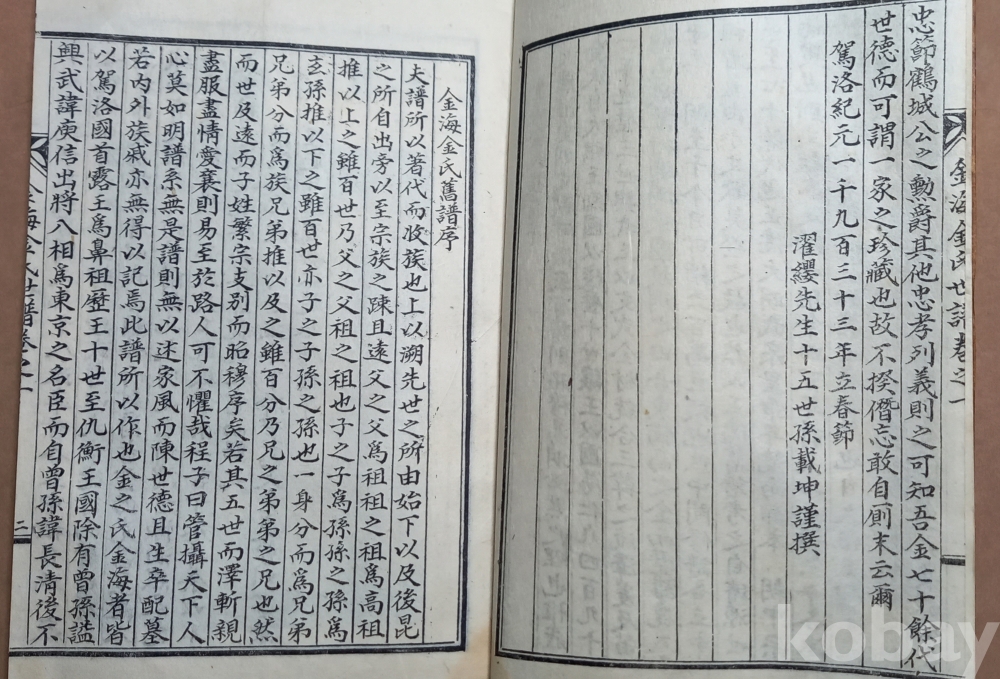 金海金氏世譜卷之一
忠節鶴城公之勳爵其他忠孝列義則之可知吾金七十餘代
世德而可謂一家之珍藏也故不揆僭忘敢自廁末云爾
駕洛紀元一千九百三十三年立春節
濯纓先生十五世孫載坤謹撰
金海金氏舊譜序
夫譜所以著代而收族也上以溯先世之所由始下以及後昆
之所自出旁以至宗族之疎且遠父之父爲祖祖之祖爲高祖
推以上之雖百世乃父之父祖之祖也子之子爲孫孫之孫爲
玄孫推以下之雖百世亦子之子孫之孫也一身分而爲兄弟
兄弟分而爲族兄弟推以及之雖百分乃兄之弟弟之兄也然
而世及遠而子姓繁宗支別而昭穆序矣若其五世而澤斬親
盡服盡情愛衰則易至於路人可不懼哉程子曰管攝天下人
心莫如明譜系無是譜則無以述家風而陳世德且生卒配墓
若內外族戚亦無得以記焉此譜所以作也金之氏金海者皆
以駕洛國首露王爲鼻祖歷王十世至仇衡王國除有曾孫諡
興武諱庾信出將入相爲東京之名臣而自曾孫諱長清後不
金海金氏世譜卷之一
二
kobay